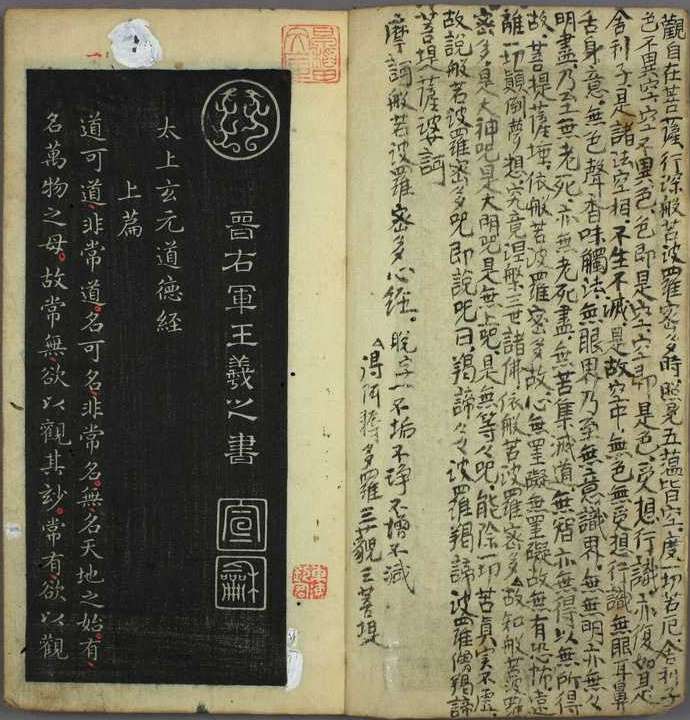 觀自在菩薩行深般若波羅密多時照見五蘊皆空度一切苦厄舍利子
色不異空空不異色色即是空空即是色受想行識亦復如是
舍利子是諸法空相不生不滅是故空中無色無受想行識無眼耳鼻
舌身意無色聲香味觸法無眼界乃至無意識界無無明亦無々
明盡乃至無老死亦無老死盡無苦集滅道無智亦無得以無所得
故菩提薩埵依般若波羅密多故心無罣礙無罣礙故無有恐怖遠
離一切顛倒夢想究竟涅槃三世諸佛依般若波羅密多故知般若波羅
密多是大神呪是大明呪是無上呪是無等々呪能除一切苦真実不虚
故說般若波羅密多呪即說呪曰羯諦々々波羅羯諦波羅僧羯諦
菩提薩婆訶
摩訶般若波羅密多心経。
脱字一不垢不淨不増不減
得阿耨多羅三藐三菩提
晉右軍王羲之書
宣龢
太上玄元道德経
上篇
道可道非常道名可名非常名無名天地之始有
名萬物之母故常無欲以觀其妙常有欲以觀